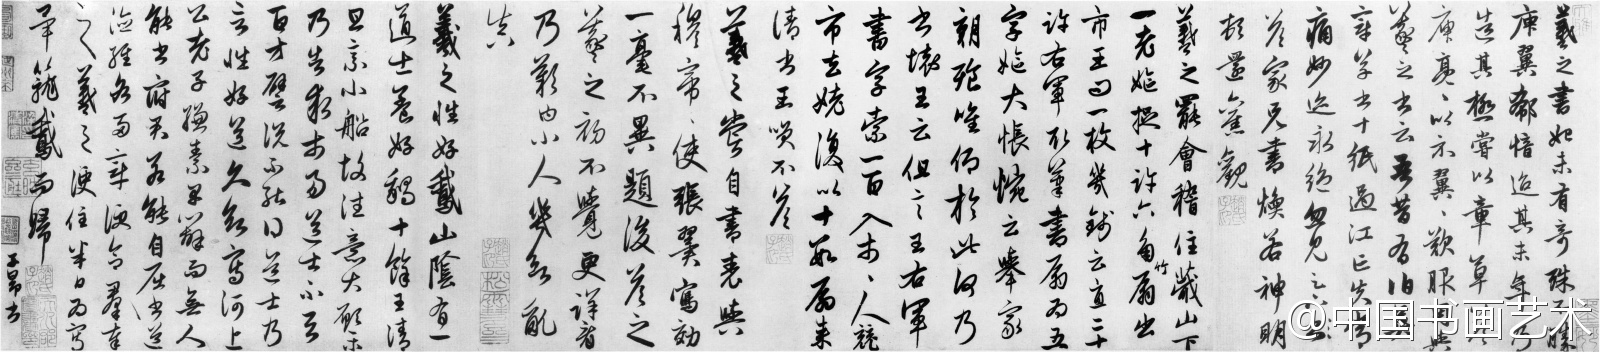 羲之書始未有奇殊不勝
庾翼郗愔迨其末年乃
造其極嘗以章草答
庾亮、以示翼、歎服因與
羲之書云吾昔有伯英
章草書十紙過江亡失常
痛妙迹永絕忽見足下
答家兄書煥若神明
頓還舊觀
羲之罷會稽住蕺山下
一老嫗捉十許六角竹扇出
市王問一枚幾錢云直二十
許右軍取筆書扇為五
字嫗大悵惋云舉家
朝飱惟仰於此何乃
書壞王云但言王右軍
書字索一百入市、人競
市去姥復以十數扇來
請書王笑不答
羲之嘗自書表與
穆帝、使張翼寫効
一毫不異題後答之
羲之初不覺更詳看
乃歎曰小人幾欲亂
真
羲之性好鵞山陰有一
道士養好鵝十餘王清
旦乘小船故往意大願樂
乃告求市易道士不與
百方譬說不能得道士乃
言性好道久欲寫河上
公老子縑素早辦而無人
能書府君若能自屈書道
德經各兩章便合羣奉
之羲之便住半日為寫
畢籠鵞而歸
子昂書
@中国书画艺术